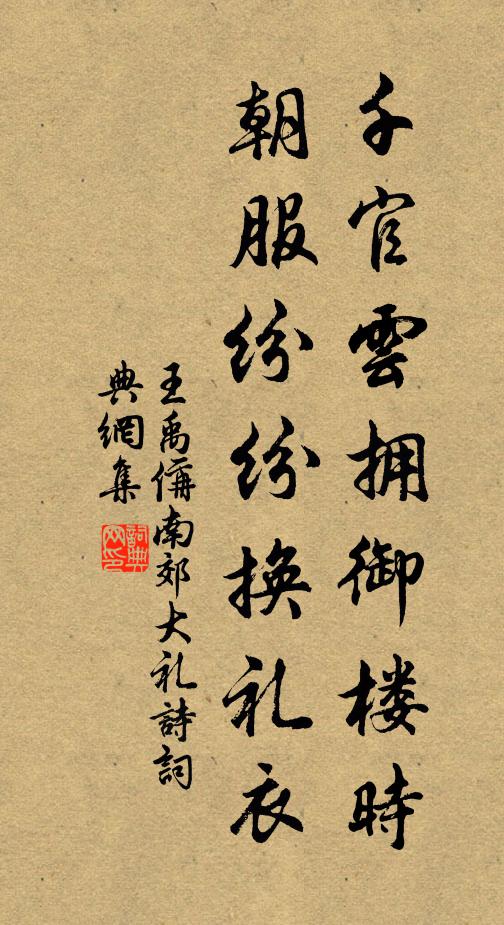 千官雲拥御楼時
朝服纷纷换礼衣
王禹偁南郊大礼詩詞
典網集
詞典网印